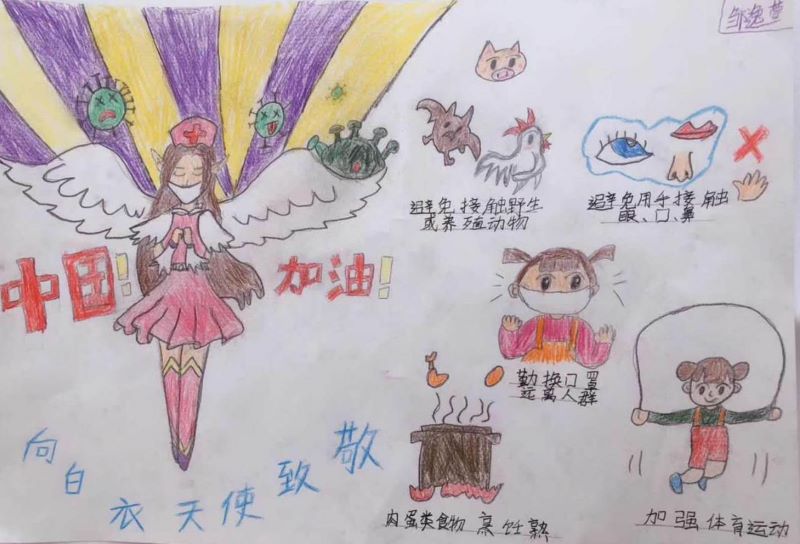 邹逸萱
避免接触野生
或养殖动物
避免用手接触
眼、口、鼻
中国！加油！
勤换口罩
远离人群
向白衣天使致敬
肉蛋类食物烹饪熟
加强体育运动